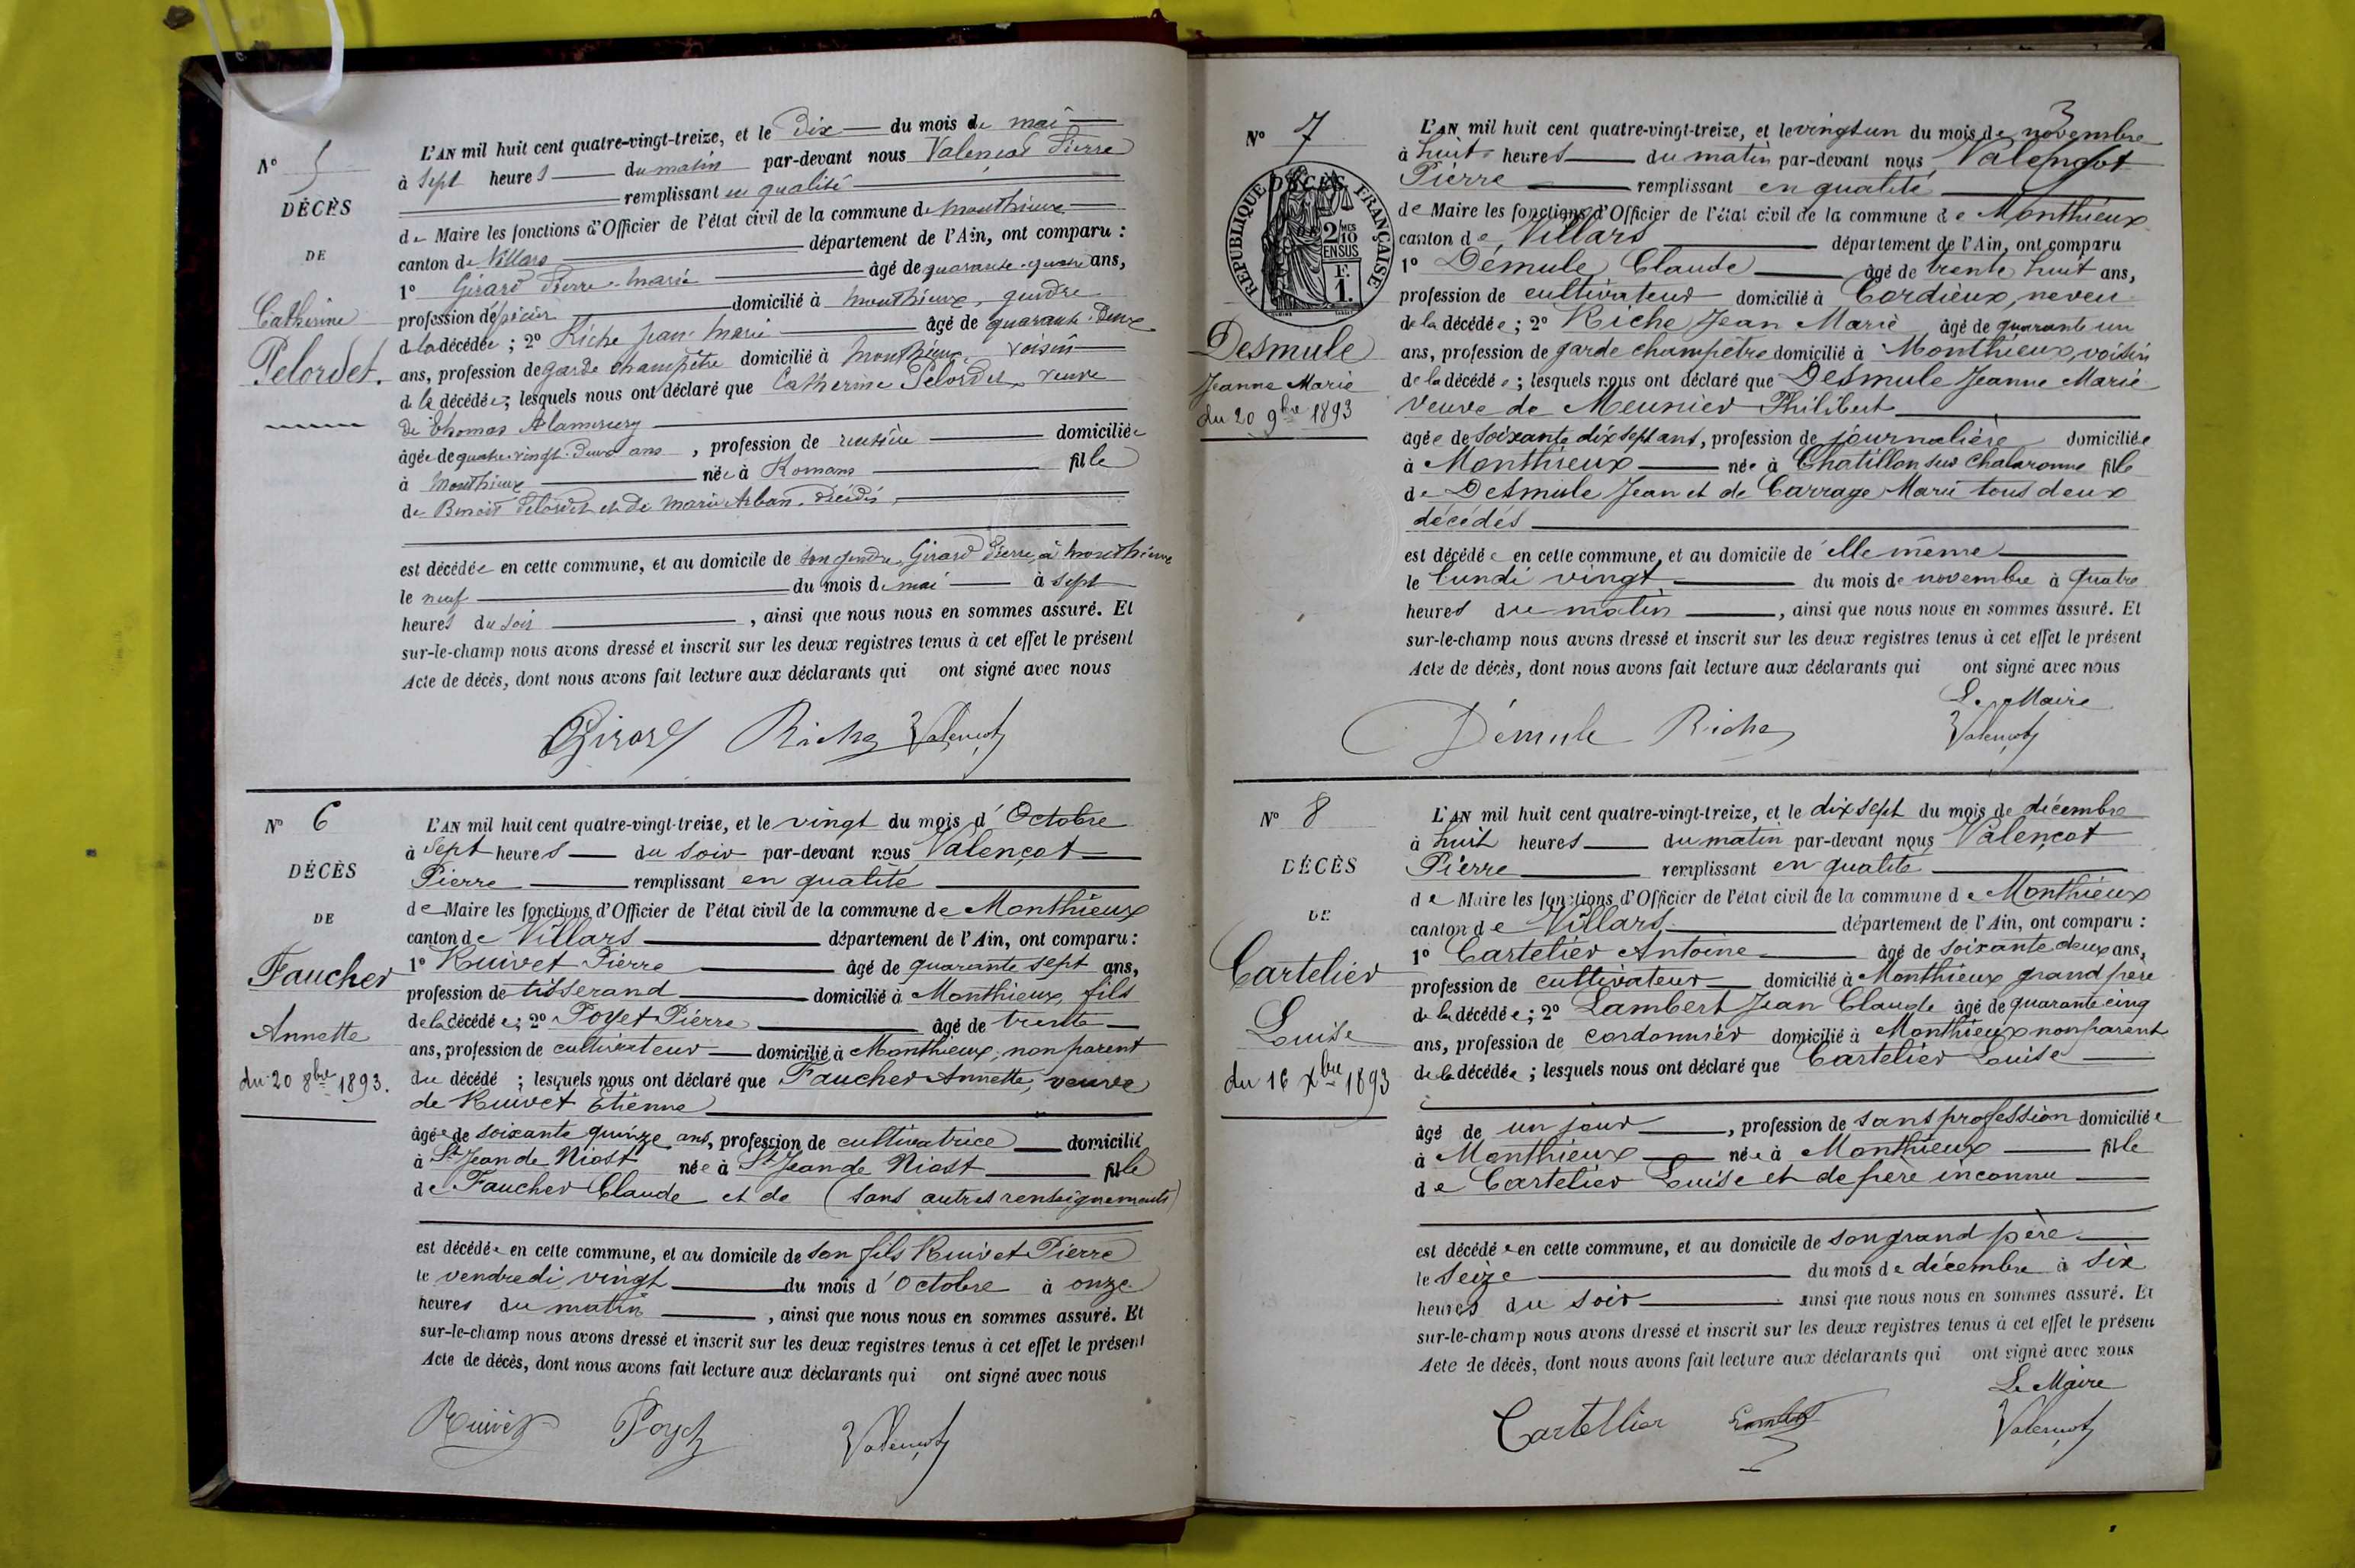 N° 5
DÉCÈS
DE
Catherine
Pelordet.
L'AN mil huit cent quatre-vingt-treize, et le Dix du mois de mai
à sept heures du matin par-devant nous Valençot Pierre
remplissant en qualité
de Maire les fonctions d'Officier de l'état civil de la commune de Monthieux
canton de Villars département de l'Ain, ont comparu :
1° Girard Pierre-Marie âgé de quarante-quatre ans,
profession d'épicier domicilié à Monthieux, gendre
de la décédée ; 2° Riche Jean Marie âgé de quarante-deux
ans, profession de garde champêtre domicilié à Monthieux, voisin
de la décédée ; lesquels nous ont déclaré que Catherine Pelordet, veuve
de Thomas Alamercery
âgée de quatre-vingt-deux ans , profession de rentière domiciliée
à Monthieux née à Romans fille
de Benoît Pelordet et de Marie Arban, décédés
est décédée en cette commune, et au domicile de son gendre, Girard Pierre, à Monthieux
le neuf du mois de mai à sept
heures du soir , ainsi que nous nous en sommes assuré. Et
sur-le-champ nous avons dressé et inscrit sur les deux registres tenus à cet effet le présent
Acte de décès, dont nous avons fait lecture aux déclarants qui ont signé avec nous
Girard Riche Valençot
N° 6
DÉCÈS
DE
Faucher
Annette
du 20 8bre 1893.
L'AN mil huit cent quatre-vingt-treize, et le vingt du mois d'Octobre
à sept heures du soir par-devant nous Valençot
Pierre remplissant en qualité
de Maire les fonctions d'Officier de l'état civil de la commune de Monthieux
canton de Villars département de l'Ain, ont comparu :
1° Ruivet Pierre âgé de quarante sept ans,
profession de tisserand domicilié à Monthieux, fils
de la décédée ; 2° Poyet Pierre âgé de trente
ans, profession de cultivateur domicilié à Monthieux, non parent
du décédé ; lesquels nous ont déclaré que Faucher Annette, veuve
de Ruivet Etienne
âgée de soixante quinze ans, profession de cultivatrice domicilié
à St Jean de Niost née à St Jean de Niost fille
de Faucher Claude et de (sans autres renseignements)
est décédée en cette commune, et au domicile de son fils Ruivet Pierre
le vendredi vingt du mois d'Octobre à onze
heures du matin , ainsi que nous nous en sommes assuré. Et
sur-le-champ nous avons dressé et inscrit sur les deux registres tenus à cet effet le présent
Acte de décès, dont nous avons fait lecture aux déclarants qui ont signé avec nous
Ruivet Poyet Valençot
3
N° 7
DÉCÈS
RÉPUBLIQUE FRANÇAISE
2 MES
10
EN SUS
F.
1.
Desmule
Jeanne Marie
du 20 9bre 1893
L'AN mil huit cent quatre-vingt-treize, et le vingt un du mois de novembre
à huit heures du matin par-devant nous Valençot
Pierre remplissant en qualité
de Maire les fonctions d'Officier de l'état civil de la commune de Monthieux
canton de Villars département de l'Ain, ont comparu
1° Démule Claude âgé de trente huit ans,
profession de cultivateur domicilié à Cordieux, neveu
de la décédée ; 2° Riche Jean Marie âgé de quarante un
ans, profession de garde champêtre domicilié à Monthieux, voisin
de la décédée ; lesquels nous ont déclaré que Desmule Jeanne Marie
veuve de Meunier Philibert
âgée de soixante dix sept ans, profession de journalière domiciliée
à Monthieux née à Chatillon sur Chalaronne fille
de Desmule Jean et de Carrage Marie tous deux
décédés
est décédée en cette commune, et au domicile de elle même
le lundi vingt du mois de novembre à quatre
heures du matin , ainsi que nous nous en sommes assuré. Et
sur-le-champ nous avons dressé et inscrit sur les deux registres tenus à cet effet le présent
Acte de décès, dont nous avons fait lecture aux déclarants qui ont signé avec nous
Le Maire
Démule Riche Valençot
N° 8
DÉCÈS
DE
Cartelier
Louise
du 16 Xbre 1893
L'AN mil huit cent quatre-vingt-treize, et le dix sept du mois de décembre
à huit heures du matin par-devant nous Valençot
Pierre remplissant en qualité
de Maire les fonctions d'Officier de l'état civil de la commune de Monthieux
canton de Villars département de l'Ain, ont comparu :
1° Cartelier Antoine âgé de soixante deux ans,
profession de cultivateur domicilié à Monthieux grand père
de la décédée ; 2° Lambert Jean Claude âgé de quarante cinq
ans, profession de cordonnier domicilié à Monthieux non parent
de la décédée ; lesquels nous ont déclaré que Cartelier Louise
âgé de un jour , profession de sans profession domiciliée
à Monthieux née à Monthieux fille
de Cartelier Louise et de père inconnu
est décédée en cette commune, et au domicile de son grand père
le seize du mois de décembre à six
heures du soir ainsi que nous nous en sommes assuré. Et
sur-le-champ nous avons dressé et inscrit sur les deux registres tenus à cet effet le présent
Acte de décès, dont nous avons fait lecture aux déclarants qui ont signé avec nous
Le Maire
Cartellier Lambert Valençot